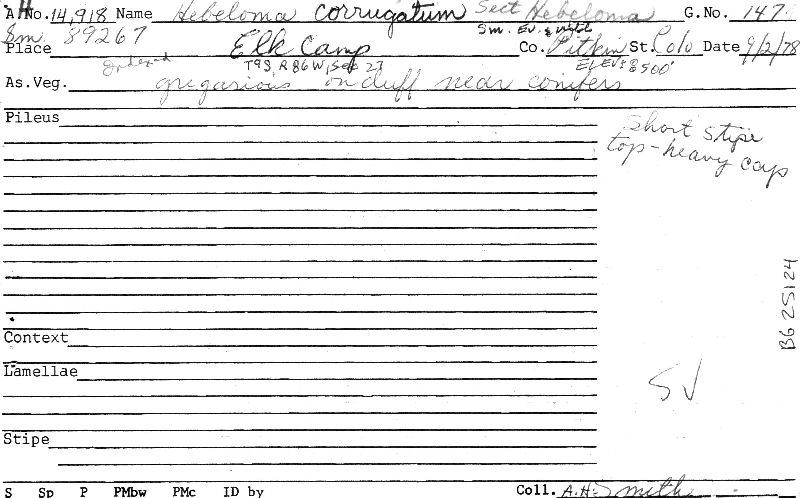 AH No. 14,918 Name Hebeloma corrugatum Sect Hebeloma G.No. 147
Sm. 89267 Sm. Ev. & Mitt
Place Elk Camp Co. Pitkin St. Colo Date 9/2/78
indexed T9S R86W, Sec 27 Elev: 8500'
As.Veg. gregarious on duff near conifers
Pileus
short stipe
top-heavy caps
BG 25124
Context
Lamellae
SV
Stipe
S Sp P PMbw PMc ID by Coll. A.H. Smith